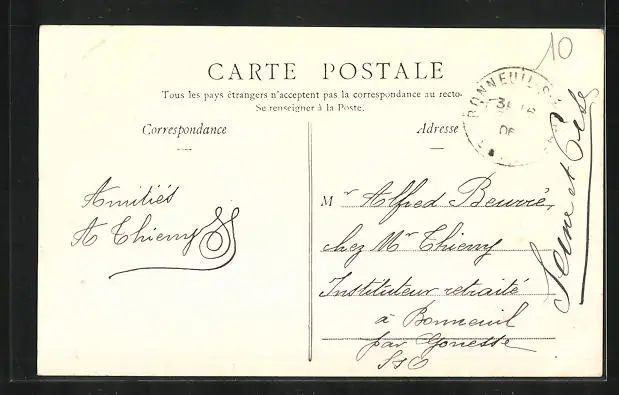 10
CARTE POSTALE
Tous les pays étrangers n'acceptent pas la correspondance au recto.
Se renseigner à la Poste.
Correspondance
Amitiés
A Thierry
Adresse
BONNEUIL
06
Mr Alfred Beuvrié,
chez Mr Thierry
Instituteur retraité
à Bonneuil
par Gonesse
S&O
Seine et Oise